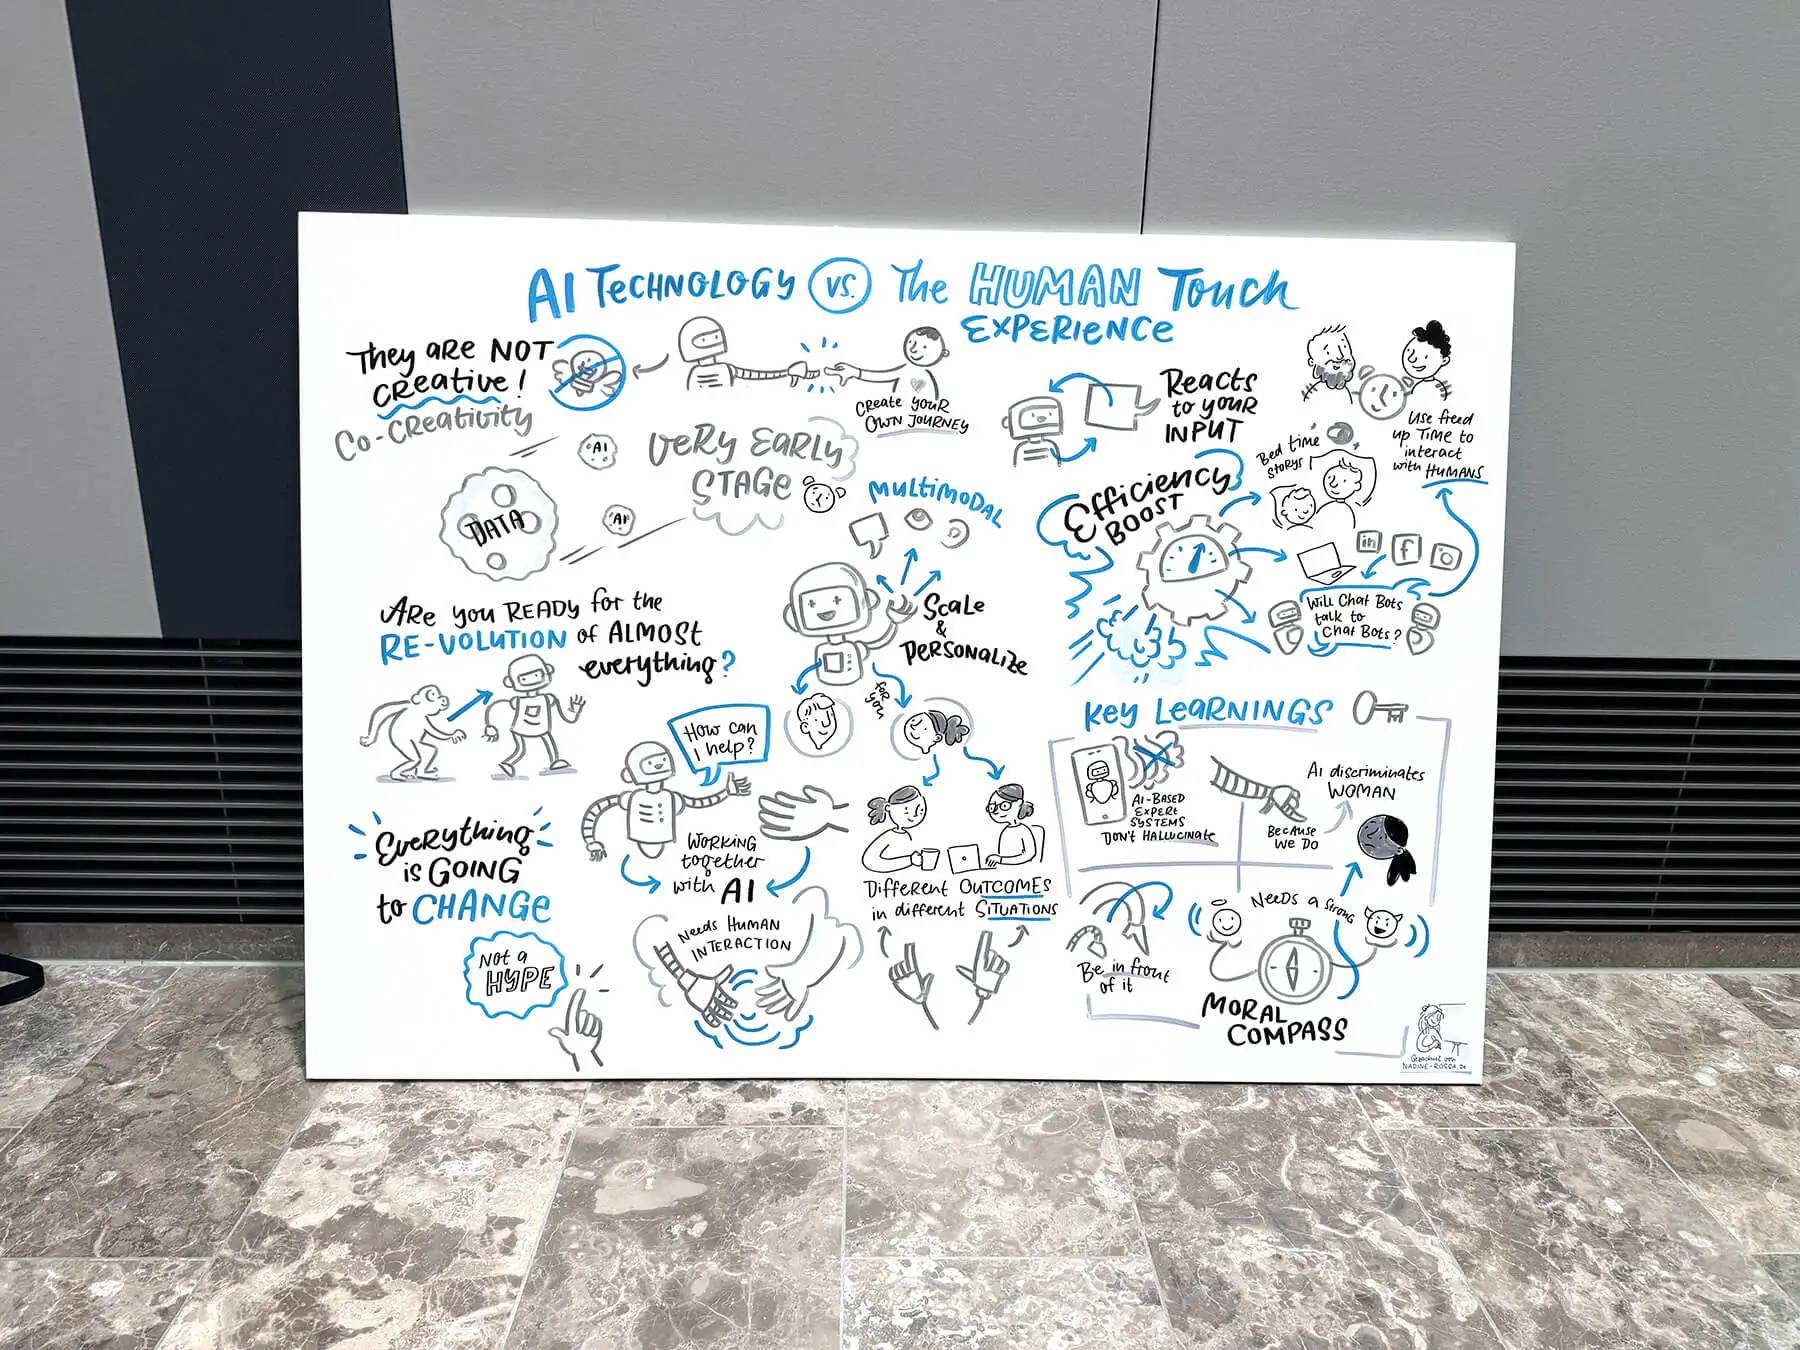 AI TECHNOLOGY VS. The HUMAN Touch
EXPERIENCE
They ARE NOT
CREATIVE!
CO-CREATIVITY
CREATE YOUR
OWN JOURNEY
VERY EARLY
STAGE
AI
DATA
AI
MULTIMODAL
Reacts
to your
INPUT
Use freed
up Time to
interact
with HUMANS
Bed time
Storys
Efficiency
BOOST
in
f
Will Chat Bots
talk to
Chat Bots?
Are you READY for the
RE-VOLUTION of ALMOST
everything?
Scale
&
PERSONALIZE
for
you
How can
I help?
WORKING
together
with AI
Needs HUMAN
INTERACTION
Different OUTCOMES
in different SITUATIONS
Everything
is GOING
to CHANGE
Not a
HYPE
KEY LEARNINGS
AI-BASED
EXPERT
SYSTEMS
DON'T HALLUCINATE
AI discriminates
WOMAN
BECAUSE
WE DO
Be in front
of it
NEEDS A STRONG
MORAL
COMPASS
Gezeichnet von
NADINE-ROSSA.DE